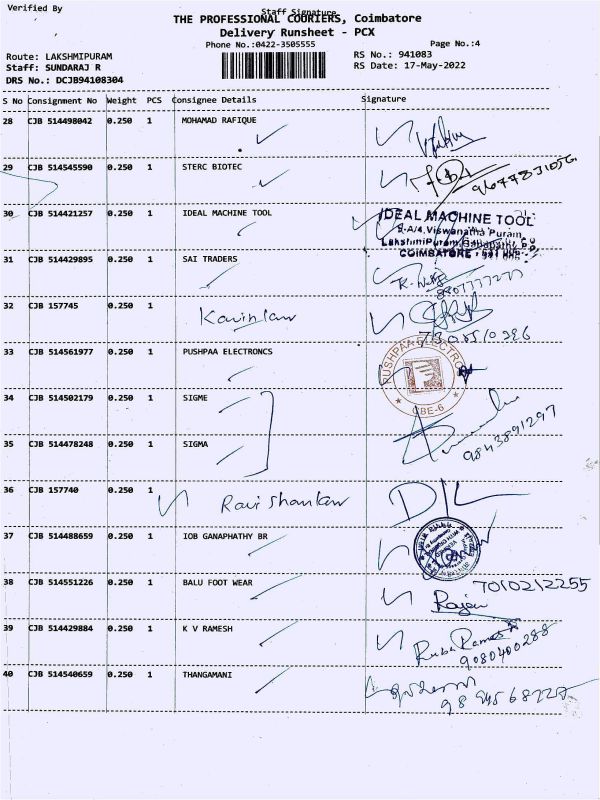 Verified By
Staff Signature
THE PROFESSIONAL COURIERS, Coimbatore
Delivery Runsheet - PCX
Phone No.:0422-3505555 Page No.:4
Route: LAKSHMIPURAM RS No.: 941083
Staff: SUNDARAJ R RS Date: 17-May-2022
DRS No.: DCJB94108304
S No Consignment No Weight PCS Consignee Details Signature
28 CJB 514498042 0.250 1 MOHAMAD RAFIQUE
29 CJB 514545590 0.250 1 STERC BIOTEC
30 CJB 514421257 0.250 1 IDEAL MACHINE TOOL
IDEAL MACHINE TOOL
Viswanatha Puram,
LakshmiPuram,
COIMBATORE
31 CJB 514429895 0.250 1 SAI TRADERS
32 CJB 157745 0.250 1
33 CJB 514561977 0.250 1 PUSHPAA ELECTRONCS
PUSHPAA ELECTRO
CBE-6
34 CJB 514502179 0.250 1 SIGME
35 CJB 514478248 0.250 1 SIGMA
9843891297
36 CJB 157740 0.250 1 Ravi Shankar
37 CJB 514488659 0.250 1 IOB GANAPHATHY BR
38 CJB 514551226 0.250 1 BALU FOOT WEAR
7010212255
Rajan
39 CJB 514429884 0.250 1 K V RAMESH
9080400288
40 CJB 514540659 0.250 1 THANGAMANI